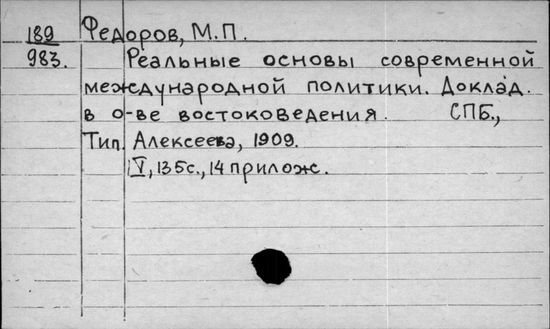 189 Федоров, М.П.
983. Реальные основы современной
международной политики. Доклад.
в о-ве востоковедения. СПБ.,
Тип. Алексеева, 1909.
V, 135с., 14 прилож.